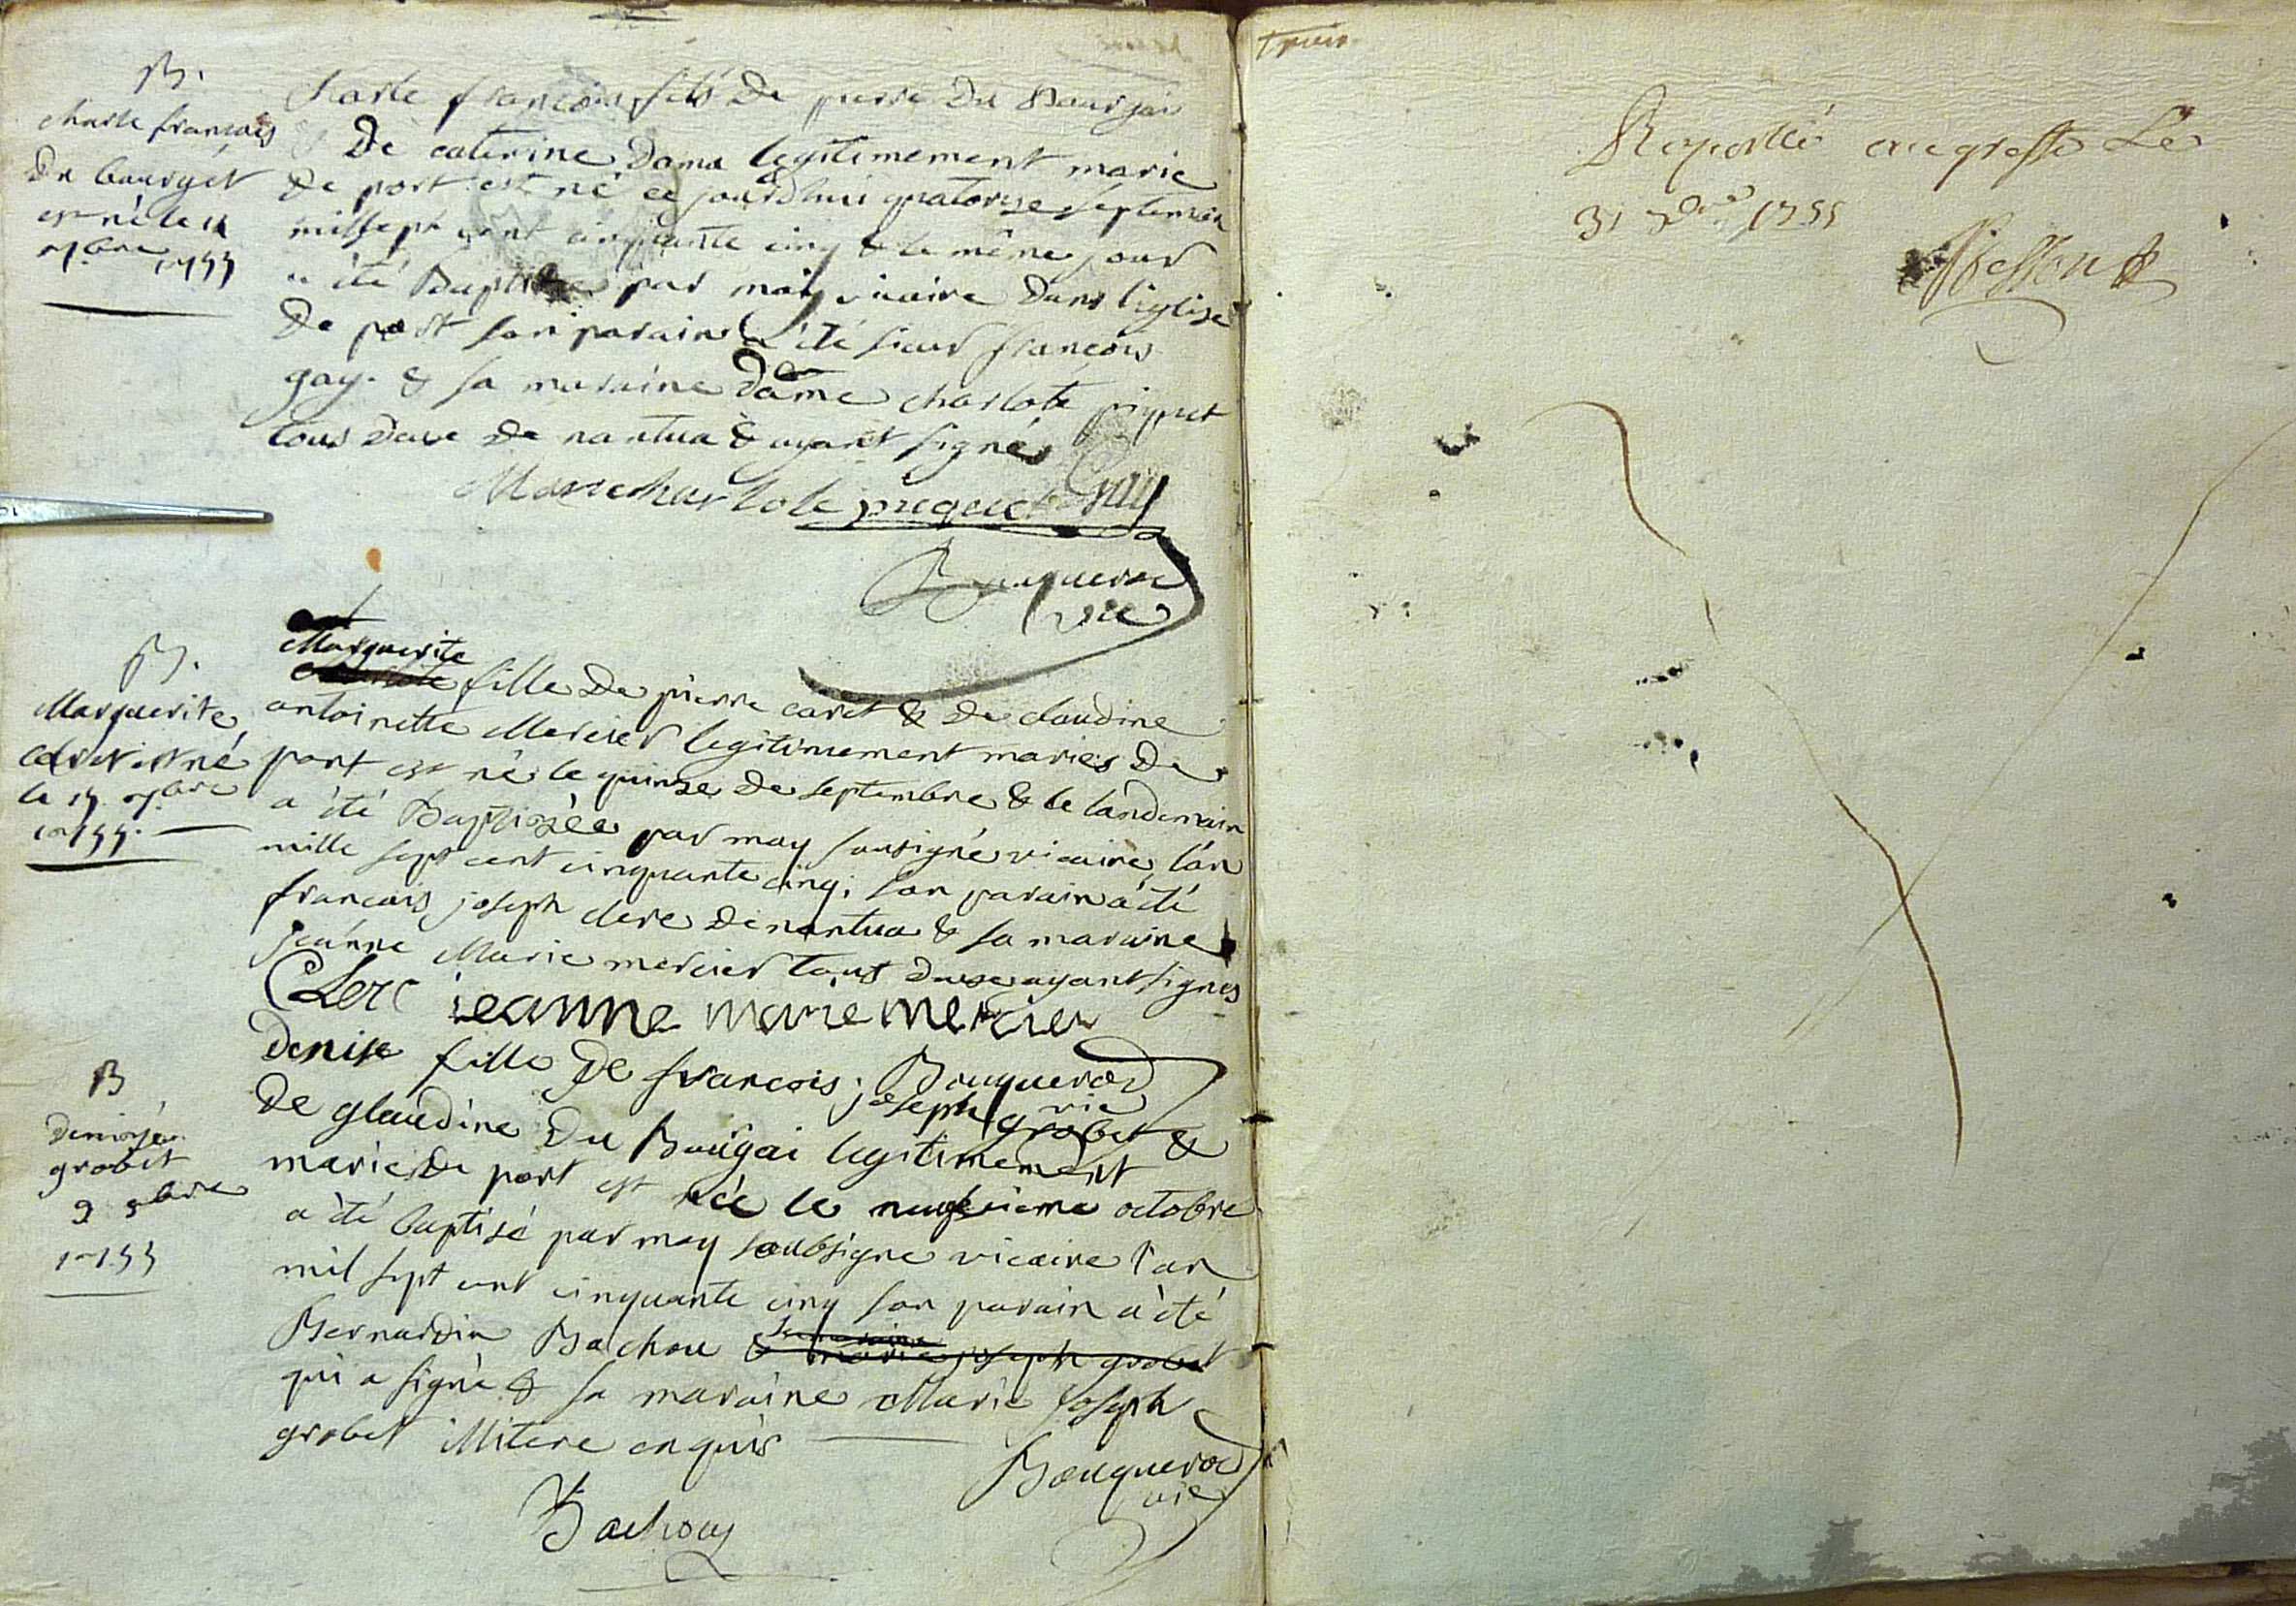 B.
charle françois
Du bourgét
est né le 14
7bre 1755
Charle françois fils De pierre Du Bourgai
& De caterine Dama legitimement marié
De port est né ce jourdhui quatorze septembre
mil sept cent cinquante cinq & le même jour
a été Baptisé par moy vicaire Dans l'eglise
De port son parain a été sieur françois
gay. & sa maraine Dame charlote piquet
tous Deux De nantua & ayant signés
Marie charlote piquet Gay
Bouquerod
vic
B.
Marguerite
caret est né
le 15 7bre
1755.
Marguerite
fille De pierre caret & De claudine
antoinette Mercier legitimement mariés De
port est né le quinze De septembre & le landemain
a été Baptizée par moy sousigné vicaire l'an
mille sept cent cinquante cinq. son parain a été
francois joseph clerc De nantua & sa maraine
jeanne Marie mercier tout Deux ayant signés
Clerc jeanne marie mercier
Bouquerod
vic
B
Denise
grobet
9 8bre
1755
Denise fille De francois joseph grobet &
De glaudine Du Bougai legitimement
marié De port est née le neufvieme octobre
a été baptisé par moy soubsigne vicaire l'an
mil sept cent cinquante cinq son parain a été
Bernardin Bachou & sa maraine marie joseph grobet
qui a signé & sa maraine Marie Joseph
grobet illitere enquis
Bouquerod
vic
Bachou
Raporté au greffe Le
31 Xbre 1755